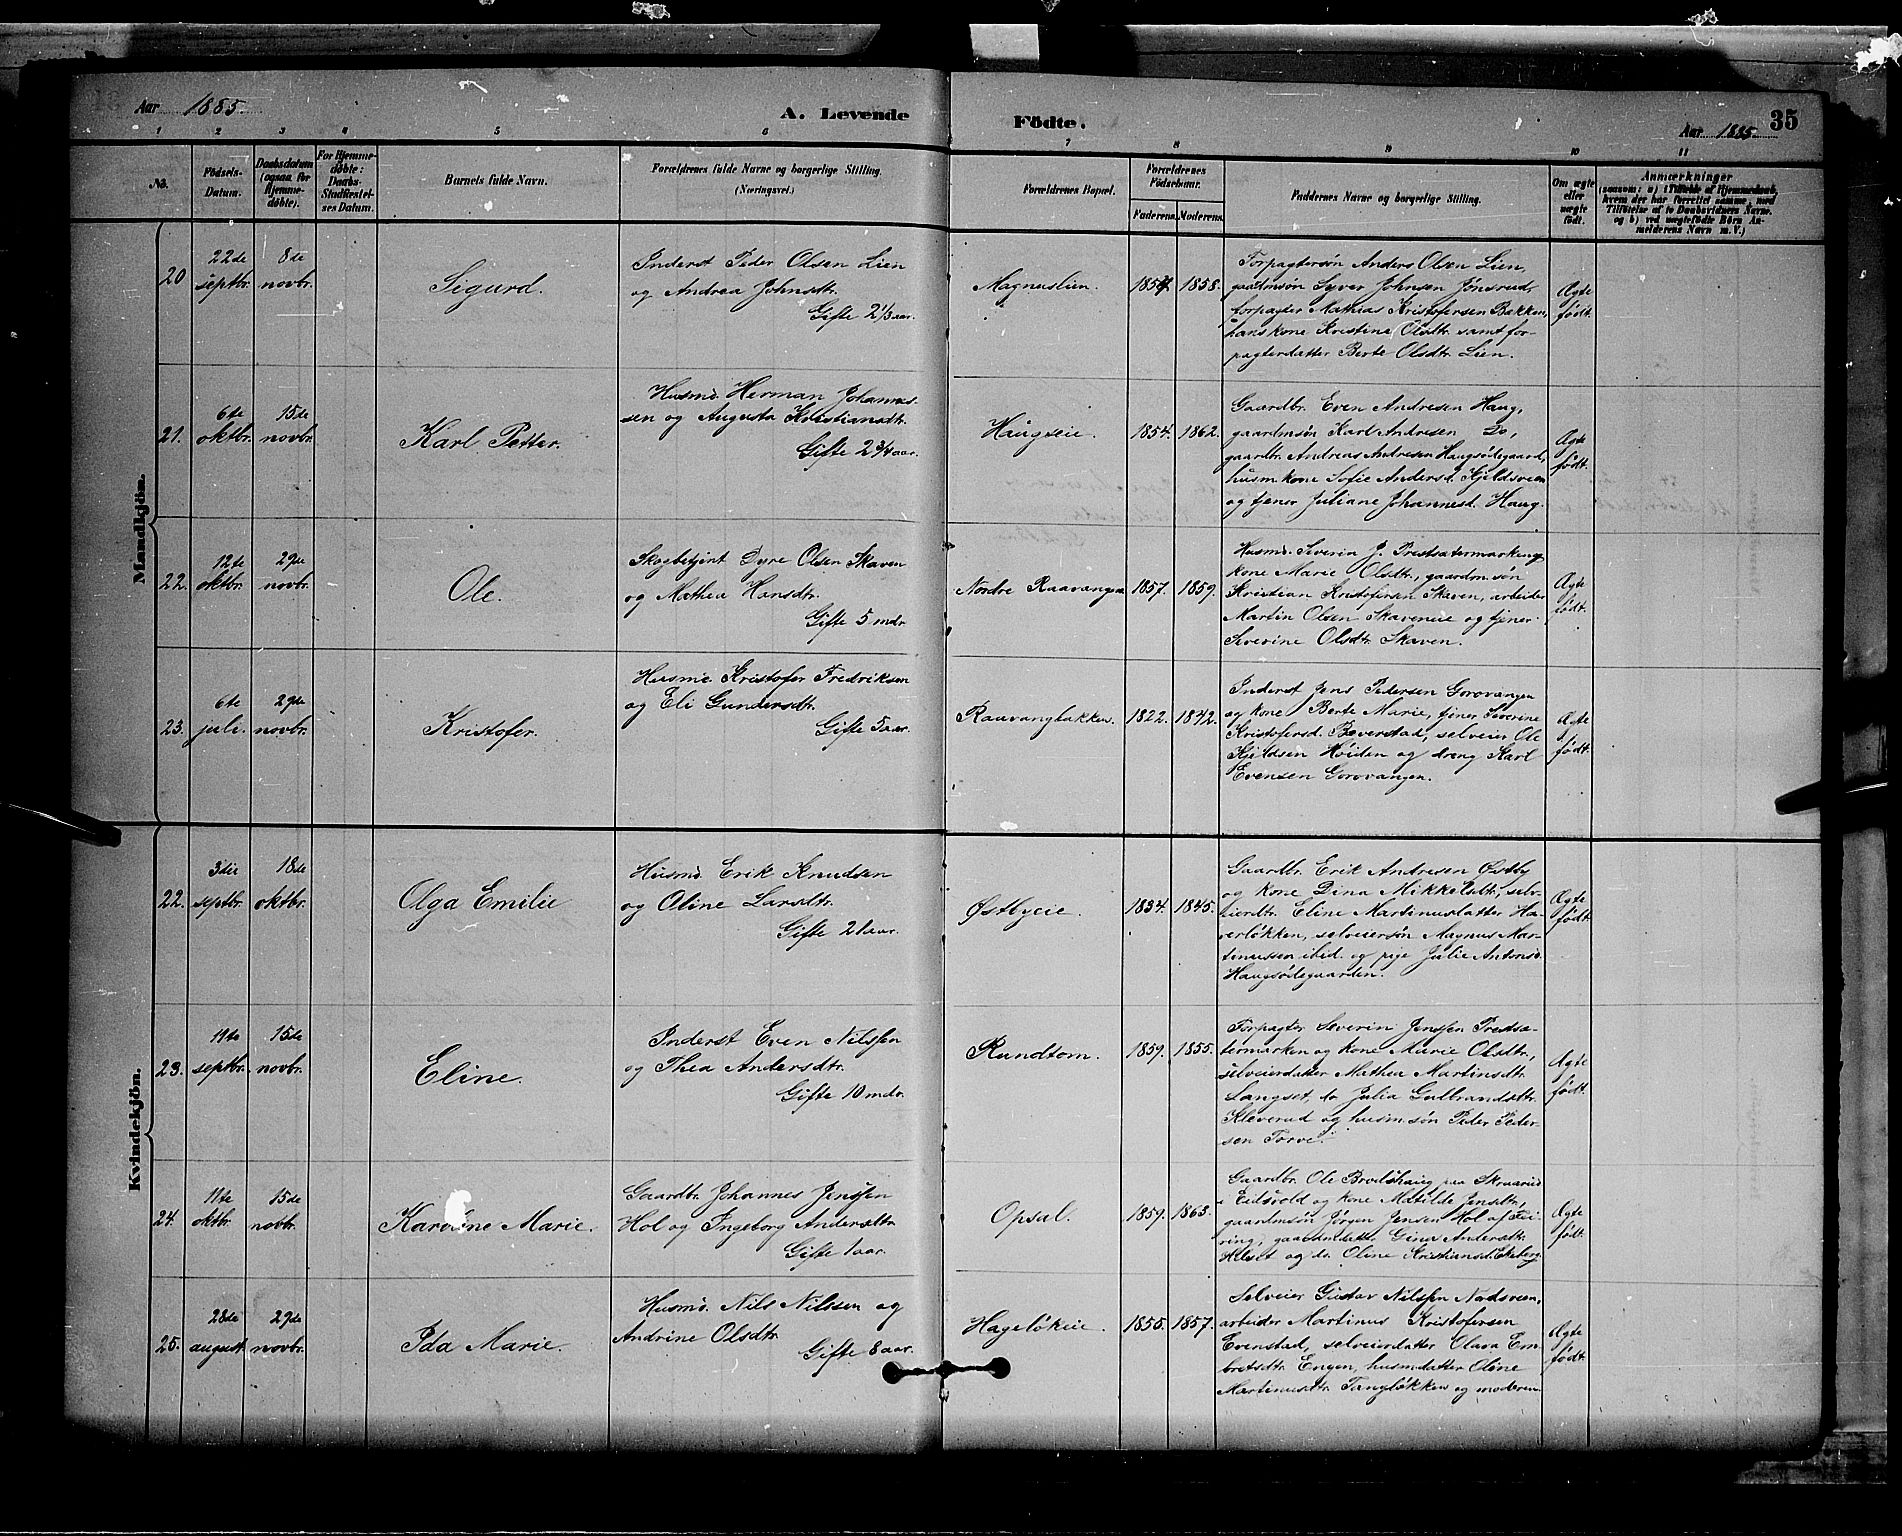 Aar 1885
A. Levende
Födte.
Aar 1885
35
1 2 3 4 5 6 7 8 9 10 11
No.
Födsels-
Datum.
Daabsdatum
(ogsaa for
Hjemme-
döbte).
For Hjemme-
döbte:
Daabs-
Stadfæstel-
ses Datum.
Barnets fulde Navn.
Forældrenes fulde Navne og borgerlige Stilling.
(Næringsvei.)
Forældrenes Bopæl.
Forældrenes
Födselsaar.
Faderens.
Moderens.
Faddernes Navne og borgerlige Stilling.
Om ægte
eller
uægte
födt.
Anmærkninger
(saasom: a) i Tilfælde af Hjemmedaab,
hvem der har forrettet samme, med
Tilföielse af to Daabsvidners Navne,
og b) ved uægtefödte Börn An-
melderens Navn m. V.)
Mandkjön.
20
22de
septbr.
8de
novbr.
Sigurd.
Inderst Peder Olsen Lien
og Andrea Johnsdtr.
Gifte 2 1/3 aar.
Magnuslien.
1858.
Forpagtersøn Anders Olsen Lien,
gaardmsøn Syver Johnsen Jønsrud,
forpagter Mathias Kristofersen Bakken,
hans kone Kristine Olsdtr. samt for-
pagterdatter Berte Olsdtr. Lien.
Ægte
født.
21.
6te
oktbr.
15de
novbr.
Karl Petter.
Husmd. Herman Johannes-
sen og Augusta Kristiansdtr.
Gifte 2 3/4 aar.
Haugseie.
1854.
1862.
Gaardbr. Even Andresen Haug,
gaardmsøn Karl Andresen Do,
gaardbr. Andreas Andresen Haugsødegaard,
husm.kone Sofie Andersd. Kjeldsveen
og tjener Juliane Johannesd. Haug.
Ægte
født.
22.
12te
oktbr.
29de
novbr.
Ole.
Skogbetjent Dyre Olsen Skaven
og Mathea Hansdtr.
Gifte 5 mdr.
Nordre Raavangen
1857.
1859.
Husmd. Severin J. Prestsætermarken og
kone Marie Olsdtr., gaardm.søn
Kristian Kristofersen Skaven, arbeider
Martin Olsen Skaveneie og tjener
Severine Olsdtr. Skaven.
Ægte
født.
23.
6te
juli.
29de
novbr.
Kristofer.
Husmd. Kristofer Fredriksen
og Eli Gundersdtr.
Gifte 5 aar.
Raavangbakken.
1822.
1842.
Inderst Jens Pedersen Gorovangen
og kone Berte Marie, tjener Severine
Kristofersd. Beverstad, selveier Ole
Kjeldsen Høiden og dreng Karl
Evensen Gorovangen.
Ægte
født.
Kvindekjön.
22.
3die
septbr.
18de
oktbr.
Olga Emilie
Husmd. Erik Knudsen
og Oline Larsdtr.
Gifte 21 aar.
Østbyeie.
1834.
1845.
Gaardbr. Erik Andresen Østby
og kone Dina Mikkelsdtr., selv-
eierdtr. Eline Martinusdatter Ha-
verløkken, selveiersøn Magnus Mar-
tinussen ibid. og pige Julie Antonsd.
Haugsødegaarden.
Ægte
født.
23.
19te
septbr.
15de
novbr.
Eline.
Inderst Even Nilssen
og Thea Andersdtr.
Gifte 10 mdr.
Rundtom.
1859.
1855.
Forpagter Severin Jenssen Prestsæ-
termarken og kone Marie Olsdtr.,
selveierdatter Mathea Martinsdtr.
Langset, do Julia Gulbrandsdtr.
Kleverud og husm.søn Peder Peder-
sen Torve.
Ægte
født.
24.
11te
oktbr.
15de
novbr.
Karoline Marie.
Gaardbr. Johannes Jenssen
Hol og Ingeborg Andersdtr.
Gifte 1 aar.
Opsal.
1859.
1863.
Gaardbr. Ole Brodshaug paa Skraarud
i Eidsvold og kone Matilde Jensdtr.,
gaardmsøn Jørgen Jensen Hol af Fei-
ring, gaardmdatter Gina Andersdtr.
Helset og do. Oline Kristiansd. Ekeberg
Ægte
født.
25.
28de
august
29de
novbr.
Ida Marie.
Husmd. Nils Nilssen og
Andrine Olsdtr.
Gifte 8 aar.
Hageløkeie.
1855.
1857.
Selveier Gustav Nilssen Nordsveen,
arbeider Martinus Kristofersen
Evenstad, selveierdatter Olava Em-
bretsdtr. Engen, husmdatter Oline
Martinusdtr. Tangløkken og moderen.
Ægte
født.